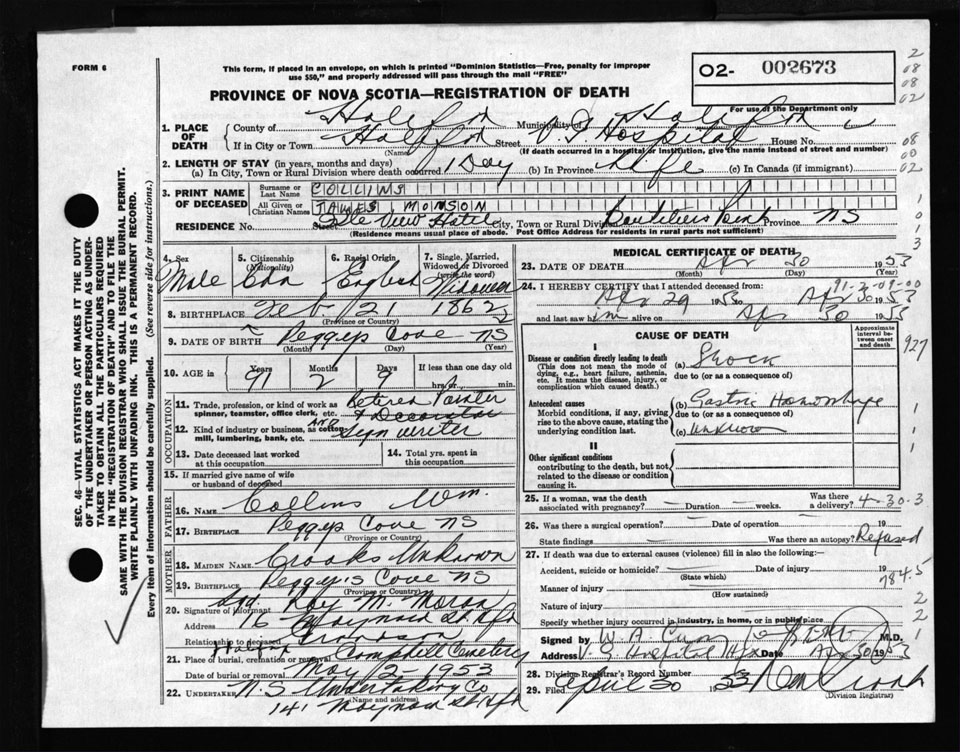 FORM 6
This form, if placed in an envelope, on which is printed "Dominion Statistics—Free, penalty for improper
use $50," and properly addressed will pass through the mail "FREE"
02- 002673
For use of the Department only
PROVINCE OF NOVA SCOTIA—REGISTRATION OF DEATH
2
08
08
02
08
00
02
1
0
1
3
1. PLACE OF DEATH
County of Halifax Municipality of Halifax
If in City or Town Halifax Street V.G. Hospital House No.
(Name) (If death occurred in a hospital or institution, give the name instead of street and number)
2. LENGTH OF STAY (in years, months and days)
(a) In City, Town or Rural Division where death occurred 1 Day (b) In Province Life (c) In Canada (if immigrant)
3. PRINT NAME OF DECEASED
Surname or Last Name COLLINS
All Given or Christian Names JAMES MONSON
RESIDENCE No. Street View Hotel City, Town or Rural Division Boutiliers Point Province NS
(Residence means usual place of abode. Post Office Address for residents in rural parts not sufficient)
4. Sex Male
5. Citizenship (Nationality) Can
6. Racial Origin English
7. Single, Married, Widowed or Divorced (write the word) Widower
8. BIRTHPLACE Feb. 21 1862
(Province or Country)
9. DATE OF BIRTH Peggys Cove NS
(Month) (Day) (Year)
10. AGE in Years 91 Months 2 Days 9 If less than one day old
hrs. or min.
OCCUPATION
11. Trade, profession, or kind of work as spinner, teamster, office clerk, etc. Retired Painter
& Decorator
12. Kind of industry or business, as cotton-mill, lumbering, bank, etc. AND Sign writer
13. Date deceased last worked at this occupation
14. Total yrs. spent in this occupation
15. If married give name of wife or husband of deceased
FATHER
16. NAME Collins Wm.
17. BIRTHPLACE Peggys Cove NS
(Province or Country)
MOTHER
18. MAIDEN NAME Crooks Unknown
19. BIRTHPLACE Peggy's Cove NS
(Province or Country)
20. Signature of informant Sgd Roy M.
Address 16 Maynard St Hfx
Relationship to deceased Grandson
21. Place of burial, cremation or removal Halifax Camphill Cemetery
Date of burial or removal May 2 - 1953
22. UNDERTAKER N.S. Undertaking Co
(Name and address)
141 Maynard St Hfx
MEDICAL CERTIFICATE OF DEATH
23. DATE OF DEATH Apr 30 1953
(Month) (Day) (Year)
24. I HEREBY CERTIFY that I attended deceased from:
91-2-09-00
Apr 29 1953 to Apr 30 1953
and last saw him alive on Apr 30 1953
CAUSE OF DEATH
Approximate interval between onset and death
927
I
Disease or condition directly leading to death
(This does not mean the mode of dying, e.g., heart failure, asthenia, etc. It means the disease, injury, or complication which caused death.)
(a) Shock
due to (or as a consequence of)
Antecedent causes
Morbid conditions, if any, giving rise to the above cause, stating the underlying condition last.
(b) Gastric Hemorrhage
due to (or as a consequence of)
(c) Unknown
1
1
1
II
Other significant conditions
contributing to the death, but not related to the disease or condition causing it.
25. If a woman, was the death associated with pregnancy? — Duration — weeks. Was there a delivery? 4-30-3
26. Was there a surgical operation? — Date of operation — 19
State findings Was there an autopsy? Refused
27. If death was due to external causes (violence) fill in also the following:—
Accident, suicide or homicide? Date of injury 19
(State which)
784.5
Manner of injury
(How sustained)
2
Nature of injury
2
Specify whether injury occurred in industry, in home, or in public place
1
Signed by W A M.D.
Address V. G. Hospital Hfx Date Apr 30 1953
28. Division Registrar's Record Number
29. Filed April 30 1953
(Division Registrar)
SEC. 46—VITAL STATISTICS ACT MAKES IT THE DUTY
OF THE UNDERTAKER OR PERSON ACTING AS UNDER-
TAKER TO OBTAIN ALL THE PARTICULARS REQUIRED
IN THE "REGISTRATION OF DEATH" AND TO FILE THE
SAME WITH THE DIVISION REGISTRAR WHO SHALL ISSUE THE BURIAL PERMIT.
WRITE PLAINLY WITH UNFADING INK. THIS IS A PERMANENT RECORD.
Every item of information should be carefully supplied. (See reverse side for instructions.)